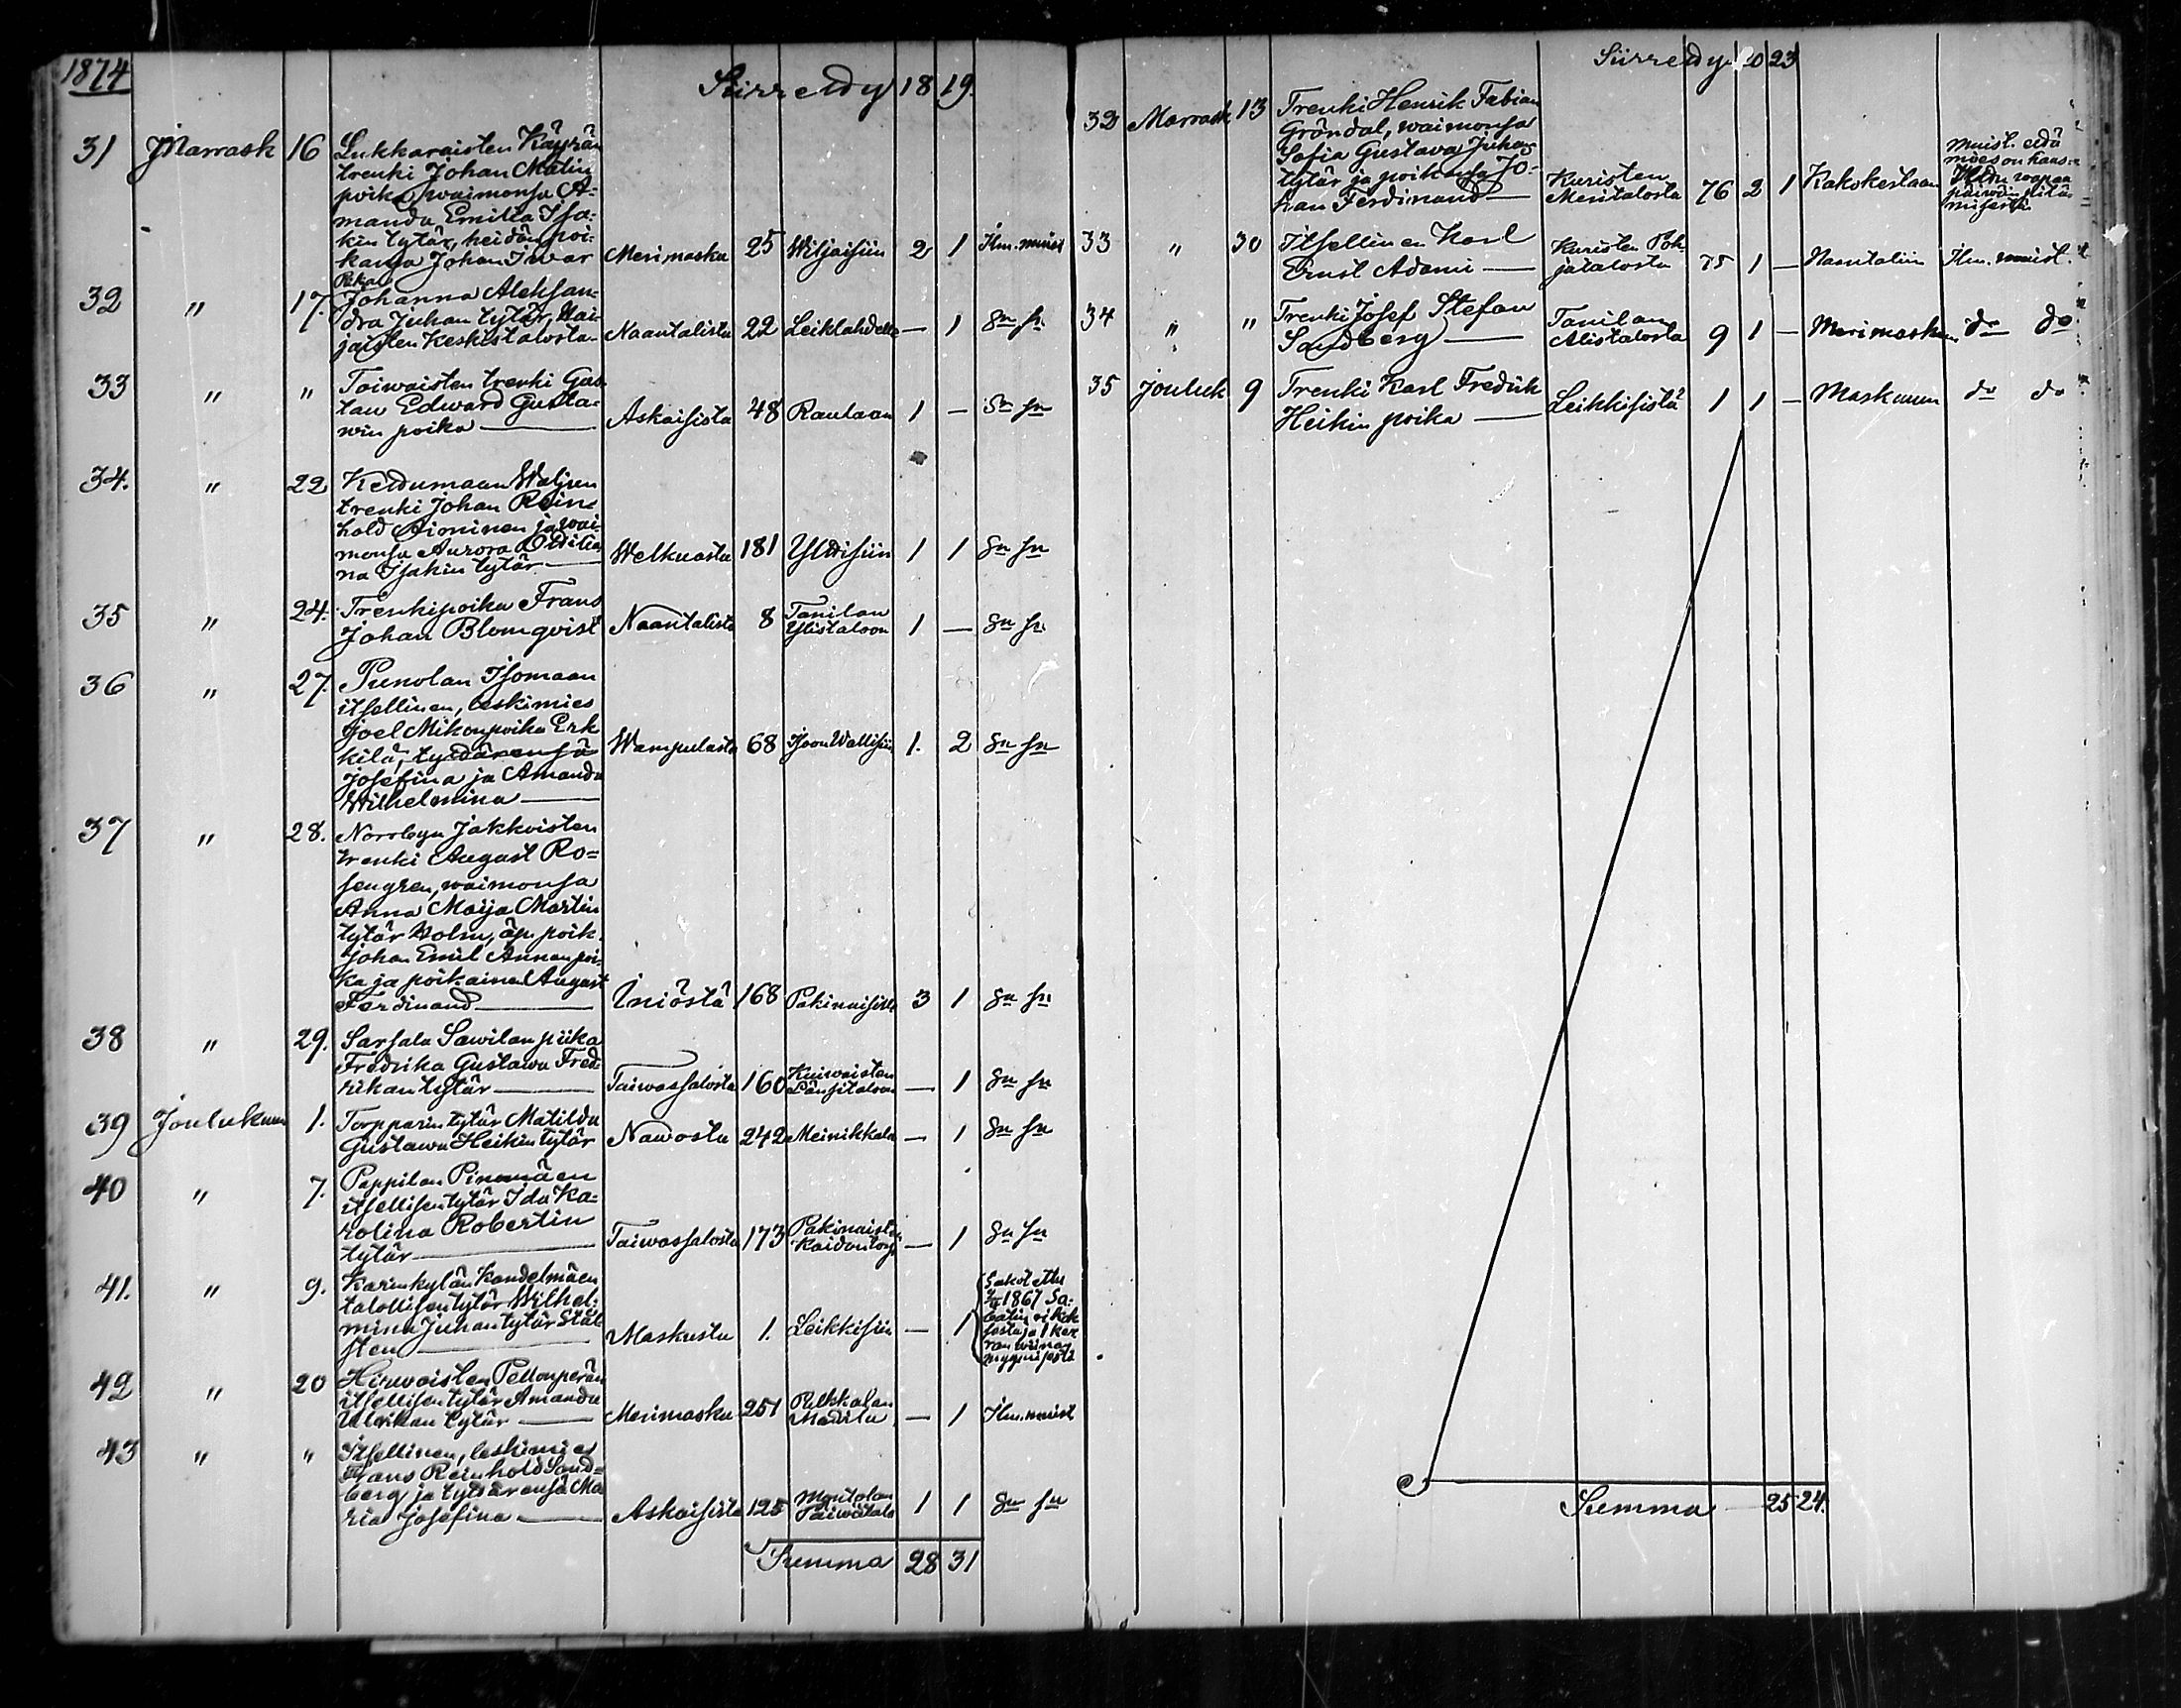 1874
Siirretty 18 19.
31 Marrask 16 Lukkaraisten Käyrän
trenki Johan Matin
poika, waimonsa A=
manda Emilia Isa=
kin tytär, heidän poi=
kansa Johan Iwar Merimasku 25 Wiljaisiin 2 1 Ilm. muist
32 " 17. Johanna Aleksan=
dra Juhan tytär,
jaisten Keskistalosta Naantalista 22 Leiklahdelle — 1 Sn sn
33 " " Taiwaisten trenki Gus
taw Edward Gusta=
win poika — Askaisista 48 Rautaan 1 — Sn sn
34. " 22 Ketdumaan
trenki Johan Rein=
hold Aioninen ja wai=
monsa Aurora
na Isakin tytär — Welkuasta 181 Yltäisiin 1 1 Sn sn
35 " 24. Trenkipoika Frans
Johan Blomqvist Naantalista 8 Tanilan
Ylistaloon 1 — Sn sn
36 " 27. Punolan Isomaan
itsellinen, leskimies
Joel Mikonpoika Erk
kilä, tyttärensä
Josefina ja Amanda
Wilhelmina — Wampulasta 68 1. 2 Sn sn
37 " 28. Norrbyn Jakkoisten
trenki August Ro=
sengren, waimonsa
Anna Maija Martin
tytär Holm, äp. poik.
Johan Emil Annan poi=
ka ja poikainen August
Ferdinand — Iniöstä 168 Pakinaisille 3 1 Sn sn
38 " 29. Sarsala Sawilan piika
Fredrika Gustawa Fred
rikan tytär — Taiwassalosta 160 Kuiwaisten
Länsitaloon — 1 Sn sn
39 Joulukuun 1. Torpparin tytär Matilda
Gustawa Heikin tytär Nawosta 242 Meinikkala — 1 Sn sn
40 " 7. Pappilan Pinomäen
itsellisen tytär Ida Ka=
rolina Robertin
tytär — Taiwassalosta 173 Pakinaisten
— 1 Sn sn
41. " 9. Karinkylän Kandelmäen
talollisen tytär Wilhel=
mina Juhan tytär Stål
sten — Maskusta 1. Leikkisiin — 1 Sakotettu
1867 Sa=
batin rikok
sesta ja 1 ker
ran wiinan
myymisestä
42 " 20 Hirwoisten Pellonperän
itsellisen tytär Amanda
Ulrikan tytär — Merimasku 251 Pulkkalan
— 1 Ilm. muist
43 " " Itsellinen, leskimies
Frans Reinhold Sand=
berg ja tyttärensä Ma
ria Josefina — Askaisista 125
1 1 Sn sn
Summa 28 31
Siirretty 20 23
32 Marrask 13 Trenki Henrik Fabian
Gröndal, waimonsa
Sofia Gustava Juhan
tytär ja poikansa Jo=
han Ferdinand — Kuristen
Meritalosta 76 2 1 Kakskertaan muist. että
mies on
33 " 30 Itsellinen Karl
Ernst Adami — Kuristen Poh
jatalosta 75 1 — Naantaliin Ilm. muist.
34 " " Trenki Josef Stefan
Sandberg — Tanilan
Alistalosta 9 1 — Merimaskuun do do
35 Jouluk 9 Trenki Karl Fredrik
Heikin poika — Leikkisistä 1 1 — Maskuun do do
Summa — 25 24.